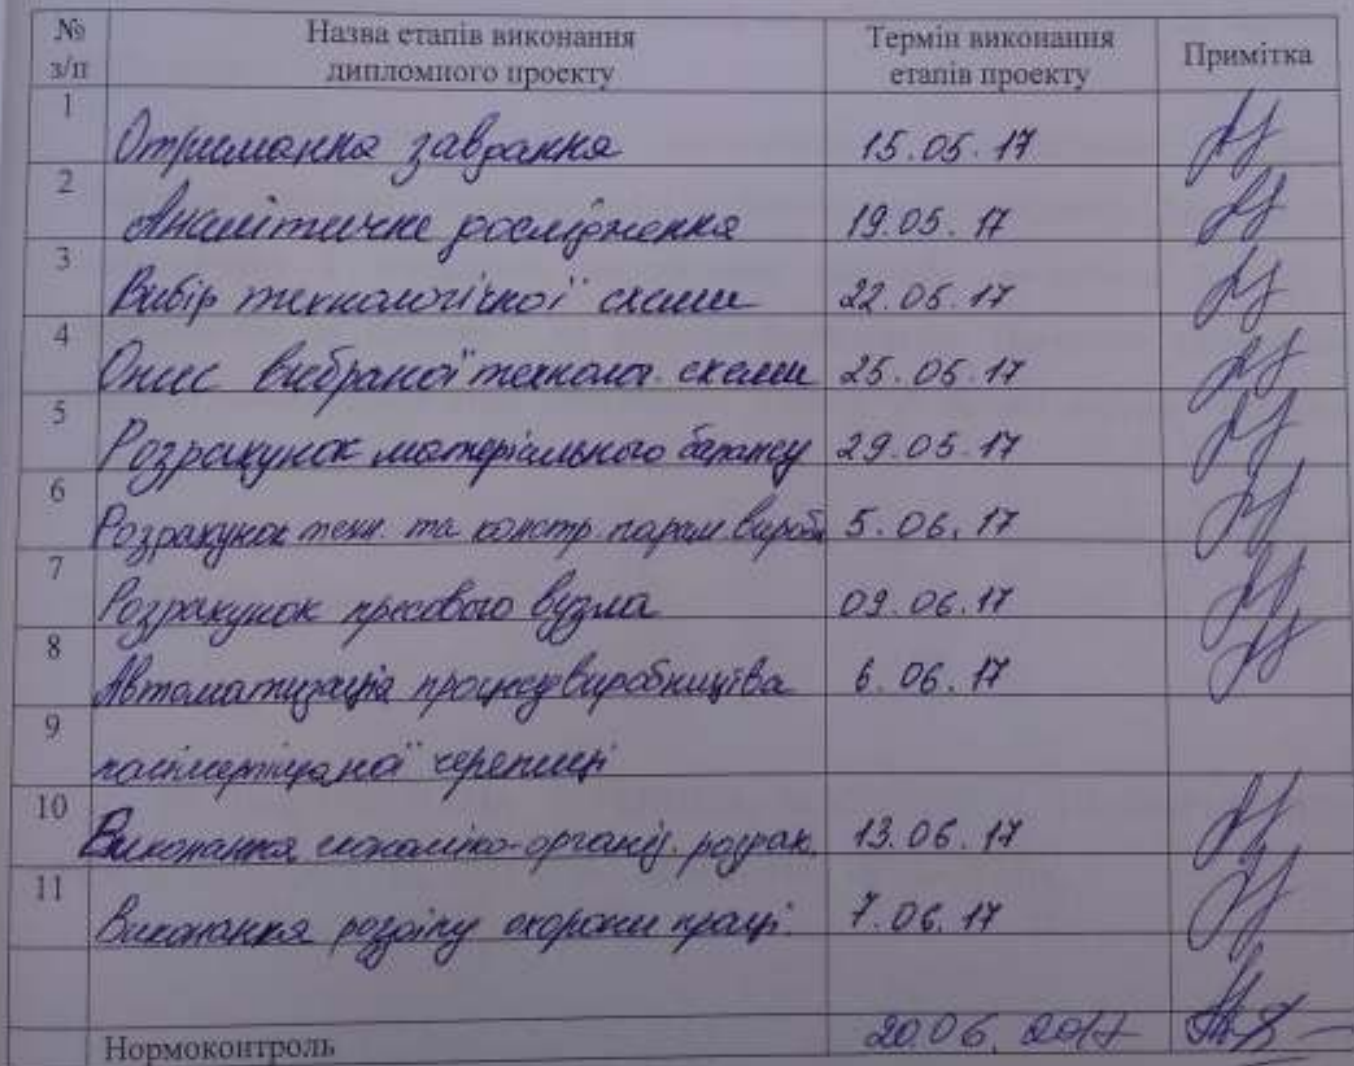 № з/п Назва етапів виконання дипломного проекту Термін виконання етапів проекту Примітка
1 Отримання завдання 15.05.17
2 Аналітичне дослідження 19.05.17
3 Вибір технологічної схеми 22.05.17
4 Опис вибраної технолог. схеми 25.05.17
5 Розрахунок матеріального балансу 29.05.17
6 Розрахунок техн. та констр. парам вироб 5.06.17
7 Розрахунок пресового вузла 09.06.17
8 Автоматизація процесу виробництва 6.06.17
9 полімерпіщаної черепиці
10 Виконання економіко-організ. розрах. 13.06.17
11 Виконання розділу охорони праці. 7.06.17
Нормоконтроль 20.06.2017